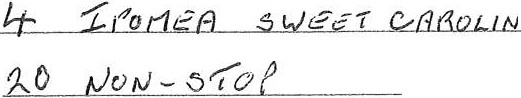 4 IPOMEA SWEET CAROLIN
20 NON-STOP